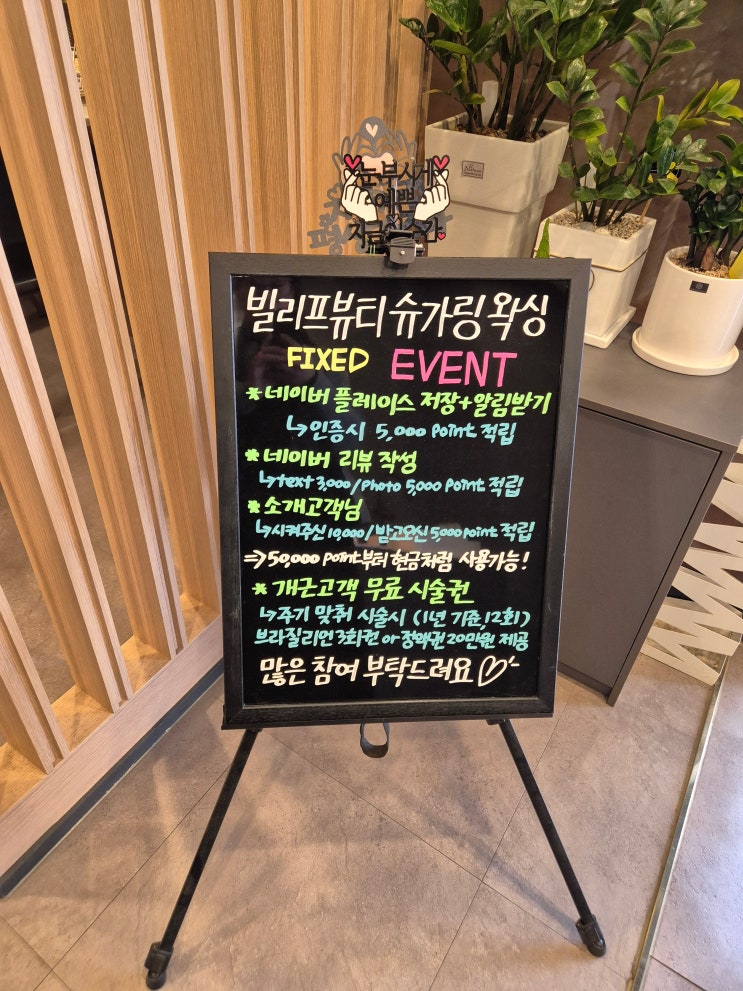 눈부시게
예쁜
지금 이 순간
빌리프뷰티 슈가링 왁싱
FIXED EVENT
* 네이버 플레이스 저장+알림받기
↳인증시 5,000 point 적립
* 네이버 리뷰 작성
↳text 3,000/photo 5,000 point 적립
* 소개고객님
↳시켜주신 10,000/받고오신 5,000 point 적립
⇒50,000 point부터 현금처럼 사용가능!
* 개근고객 무료 시술권
↳주기 맞춰 시술시 (1년 기준, 12회)
브라질리언 3회권 or 정액권 20만원 제공
많은 참여 부탁드려요♡